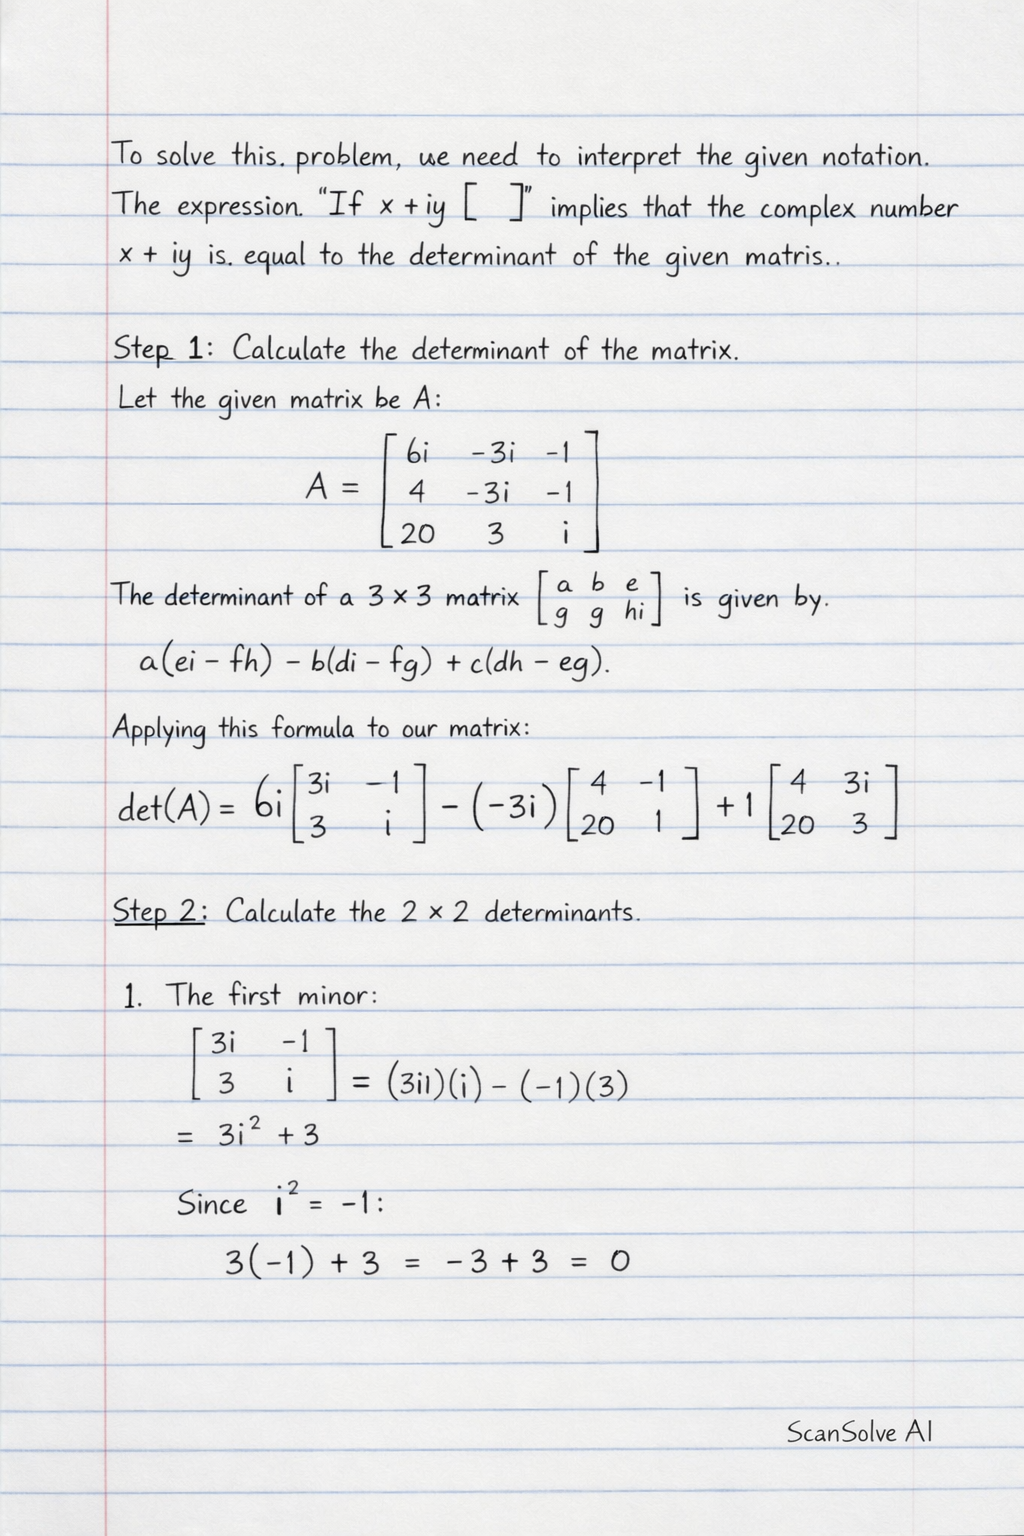 To solve this. problem, we need to interpret the given notation.
The expression. "If x + iy [ ]" implies that the complex number
x + iy is. equal to the determinant of the given matris..
Step 1: Calculate the determinant of the matrix.
Let the given matrix be A:
A = [ 6i -3i -1
4 -3i -1
20 3 i ]
The determinant of a 3 × 3 matrix [ a b e
g g hi ] is given by.
a(ei - fh) - b(di - fg) + c(dh - eg).
Applying this formula to our matrix:
det(A) = 6i [ 3i -1
3 i ] - (-3i) [ 4 -1
20 1 ] + 1 [ 4 3i
20 3 ]
Step 2: Calculate the 2 × 2 determinants.
1. The first minor:
[ 3i -1
3 i ] = (3i1)(i) - (-1)(3)
= 3i² + 3
Since i² = -1:
3(-1) + 3 = -3 + 3 = 0
ScanSolve AI